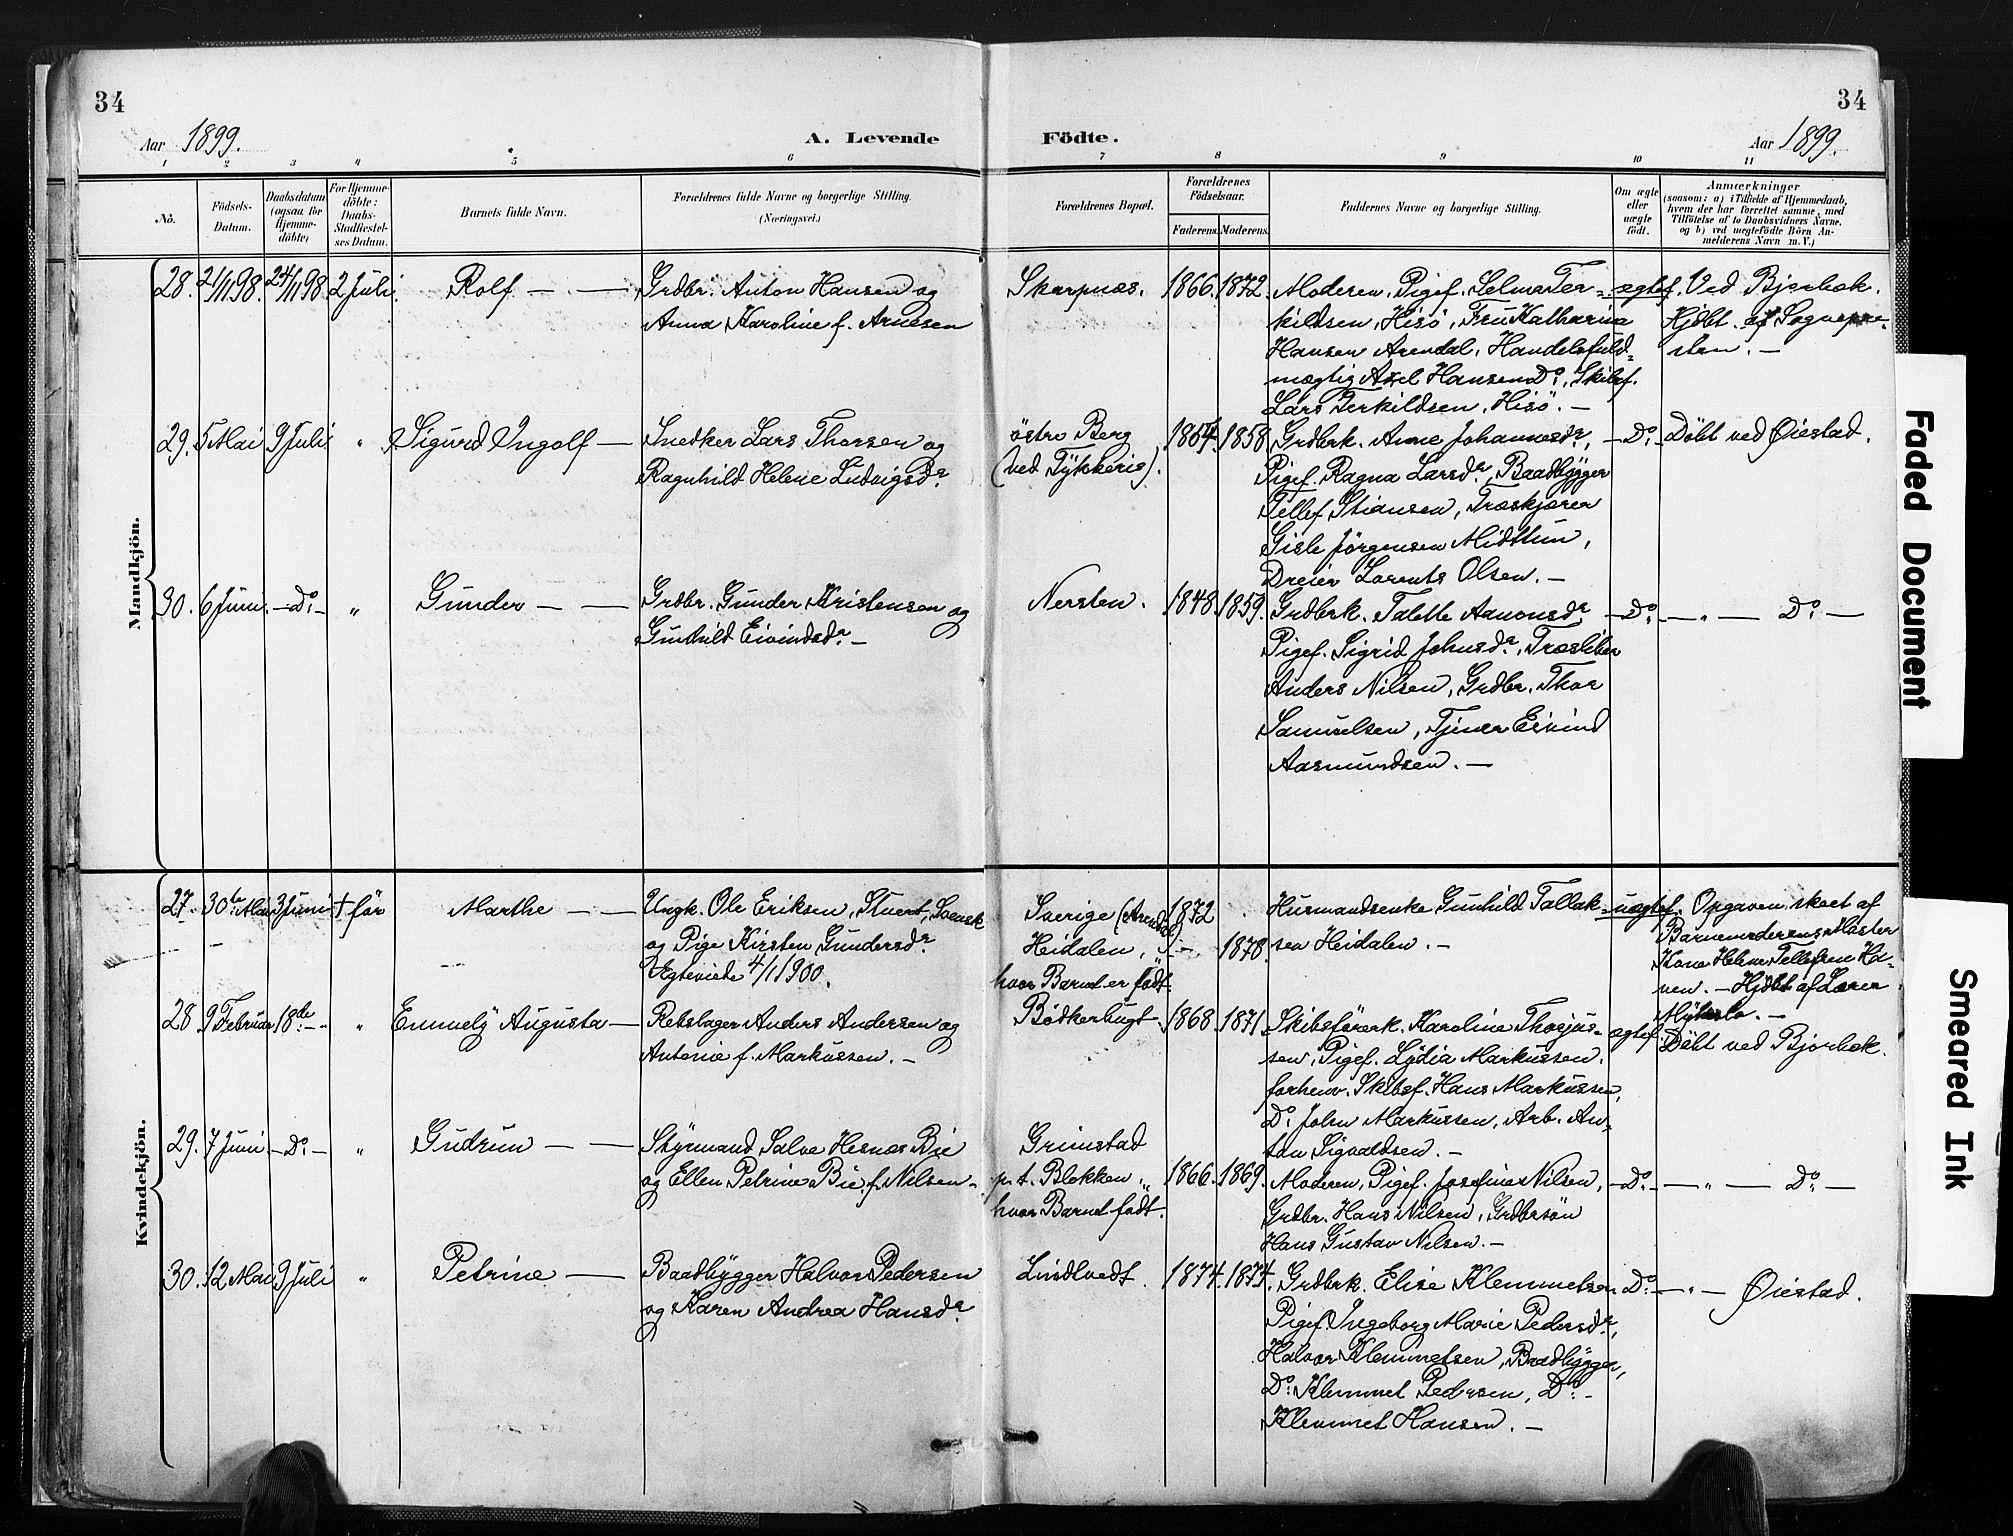 34
34
Aar 1899.
A. Levende
Födte.
Aar 1899.
1 2 3 4 5 6 7 8 9 10 11
No.
Födsels-
Datum.
Daabsdatum
(ogsaa for
Hjemme-
döbte)
For Hjemme-
döbte:
Daabs-
Stadfæstel-
ses Datum.
Barnets fulde Navn.
Forældrenes fulde Navne og borgerlige Stilling.
(Næringsvei.)
Forældrenes Bopæl.
Forældrenes
Födselsaar.
Faderens. Moderens.
Faddernes Navne og borgerlige Stilling.
Om ægte
eller
uægte
födt.
Anmærkninger
(saasom: a) i Tilfælde af Hjemmedaab,
hvem der har forrettet samme, med
Tilföielse af to Daabsvidners Navne,
og b) ved uægtefödte Börn An-
melderens Navn m. V.)
Mandkjön.
28. 21/11 98. 24/11 98. 2 Juli.
Rolf — —
Grdbr. Anton Hansen og
Anna Karoline f. Arnesen
Skarpnæs.
1866. 1872.
Moderen, Pigef. Selma Ter-
kildsen, Hisö, Fru Katharina
Hansen Arendal, Handelsfuld-
mægtig Axel Hansen Do:, Skibsf.
Lars Terkildsen, Hisö. —
ægtef.
Ved Bjorbæk.
Hjdbt. af Sognepre-
sten. —
29. 5 Mai 9 Juli "
Sigurd Ingolf —
Snedker Lars Thorsen og
Ragnhild Helene Ludvigsdr.
östre Berg
(ved Tykkeris).
1864. 1858.
Grdbrk. Anne Johannesdr.,
Pigef. Ragna Larsdr., Baadbygger
Tellef Stiansen, Træskjærer
Gisle Jörgensen Midttun,
Dreier Lorents Olsen. —
— Do: —
Döbt ved Øiestad.
30. 6 Juni. — Do: — "
Gunder — —
Grdbr. Gunder Kristensen og
Gunhild Eivindsdr. —
Nersten.
1848. 1859.
Grdbrk. Talette Aanonsdr.
Pigef. Sigrid Johnsdr., Træsliber
Anders Nilsen, Grdbr. Thor
Samuelsen, Tjener Eivind
Aasmundsen. —
— Do: —
— " — Do: —
Kvindekjön.
27. 30te Mai 3 Juni † før
Marthe — —
Ungk. Ole Eriksen, Stuert, Svensk
og Pige Kirsten Gundersdr.
Ægteviede 4/1 1900.
Sverige (Arendal)
Heidalen,
hvor Barnet er født.
1872
1878.
Husmandsenke Gunhild Tallak-
sen Heidalen. —
uægtef.
Opgaven skeet af
Barnemoderens Moster
Kone Helene Tellefsen Ha-
ven. — Hjdbt af Lærer
28 9 Februar 18de — "
Emmely Augusta —
Rebslager Anders Andersen og
Antonie f. Markussen. —
Bödkerbugt.
1868. 1871.
Skibsförerk. Karoline Thorjus-
sen, Pigef. Lydia Markussen,
forhenv. Skibsf. Hans Markussen,
Do: John Markussen, Arb. An-
ton Sigvaldsen. —
ægtef.
Döbt ved Bjorbæk.
29. 7 Juni — Do: — "
Gudrun — —
Styrmand Salve Hesnæs Bie
og Ellen Petrine Bie f. Nilsen —
Grimstad
p. t. Blekken "
hvor Barnet født.
1866. 1869.
Moderen, Pigef. Josefine Nilsen,
Grdbr. Hans Nilsen, Grdbrsön
Hans Gustav Nilsen. —
— Do: —
— " — Do: —
30. 12 Mai 9 Juli "
Petrine —
Baadbygger Halvor Pedersen
og Karen Andrea Hansdr.
Lindtvedt.
1874. 1874.
Grdbrk. Elise Klemmetsen
Pigef. Ingeborg Marie Pedersdr.,
Halvor Klemmetsen, Baadbygger,
Do: Klemmet Pedersen, Do: —
Klemmet Hansen. —
Do: —
— " — Øiestad.
Faded Document
Smeared Ink